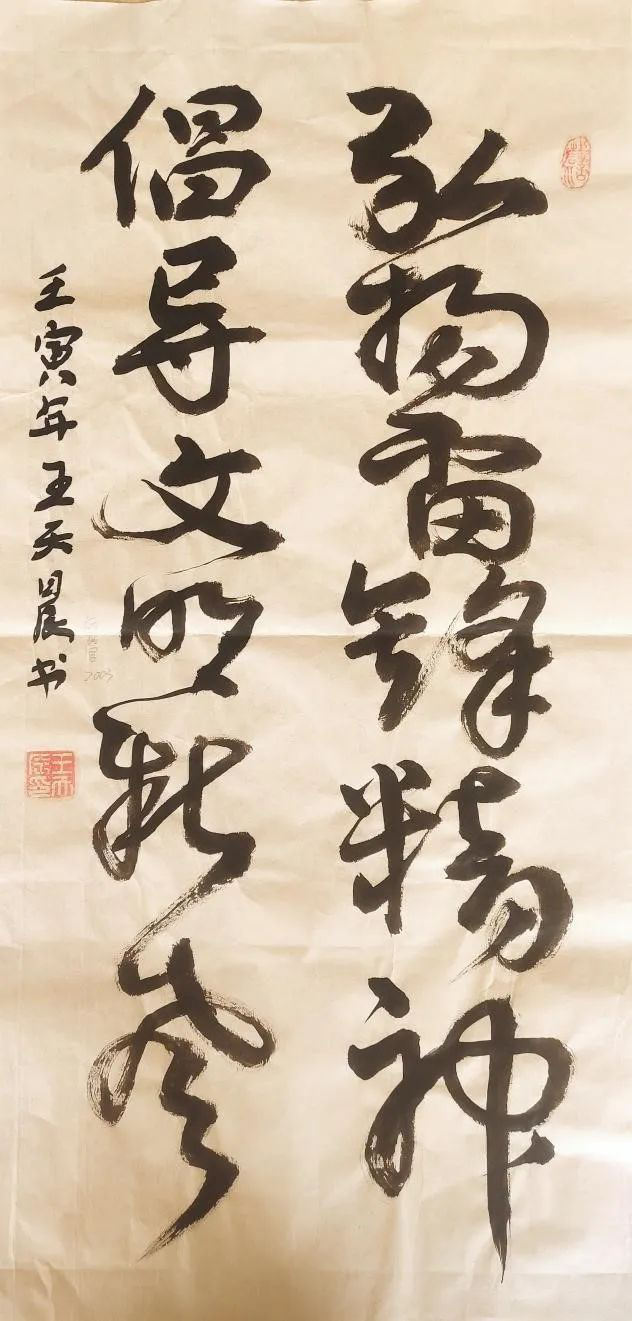 弘扬雷锋精神
倡导文明新
壬寅年王天晨书